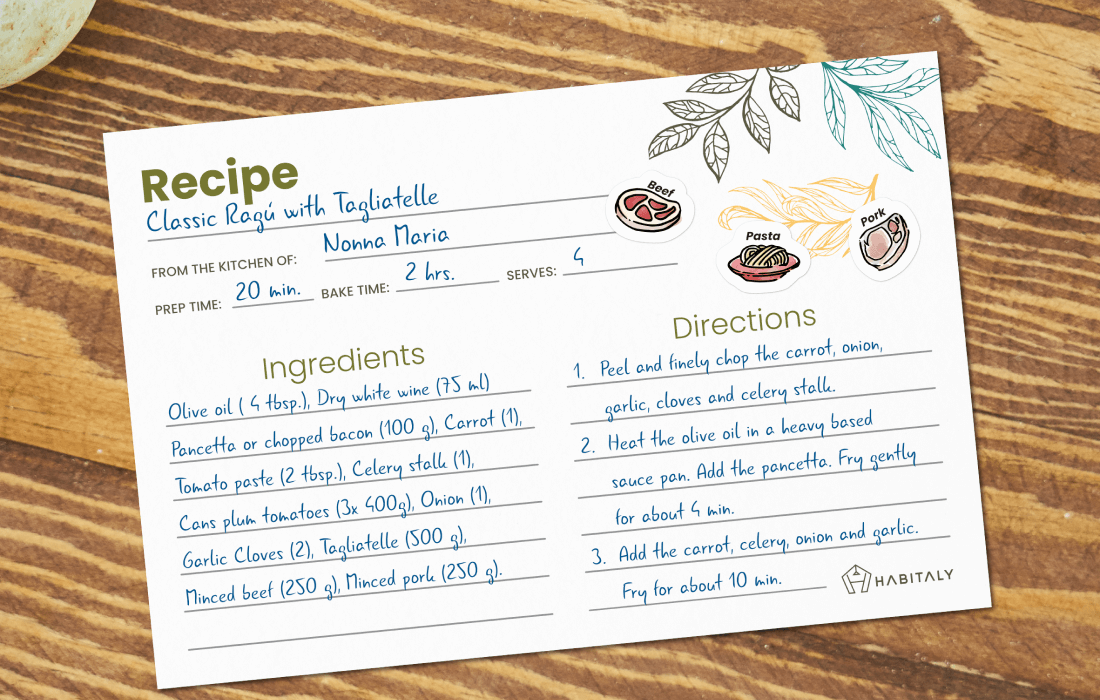 Recipe
Classic Ragú with Tagliatelle
FROM THE KITCHEN OF: Nonna Maria
PREP TIME: 20 min. BAKE TIME: 2 hrs. SERVES: 4
Beef
Pasta
Pork
Ingredients
Olive oil ( 4 tbsp.), Dry white wine (75 ml)
Pancetta or chopped bacon (100 g), Carrot (1),
Tomato paste (2 tbsp.), Celery stalk (1),
Cans plum tomatoes (3x 400g), Onion (1),
Garlic Cloves (2), Tagliatelle (500 g),
Minced beef (250 g), Minced pork (250 g).
Directions
1. Peel and finely chop the carrot, onion,
garlic, cloves and celery stalk.
2. Heat the olive oil in a heavy based
sauce pan. Add the pancetta. Fry gently
for about 4 min.
3. Add the carrot, celery, onion and garlic.
Fry for about 10 min.
HABITALY